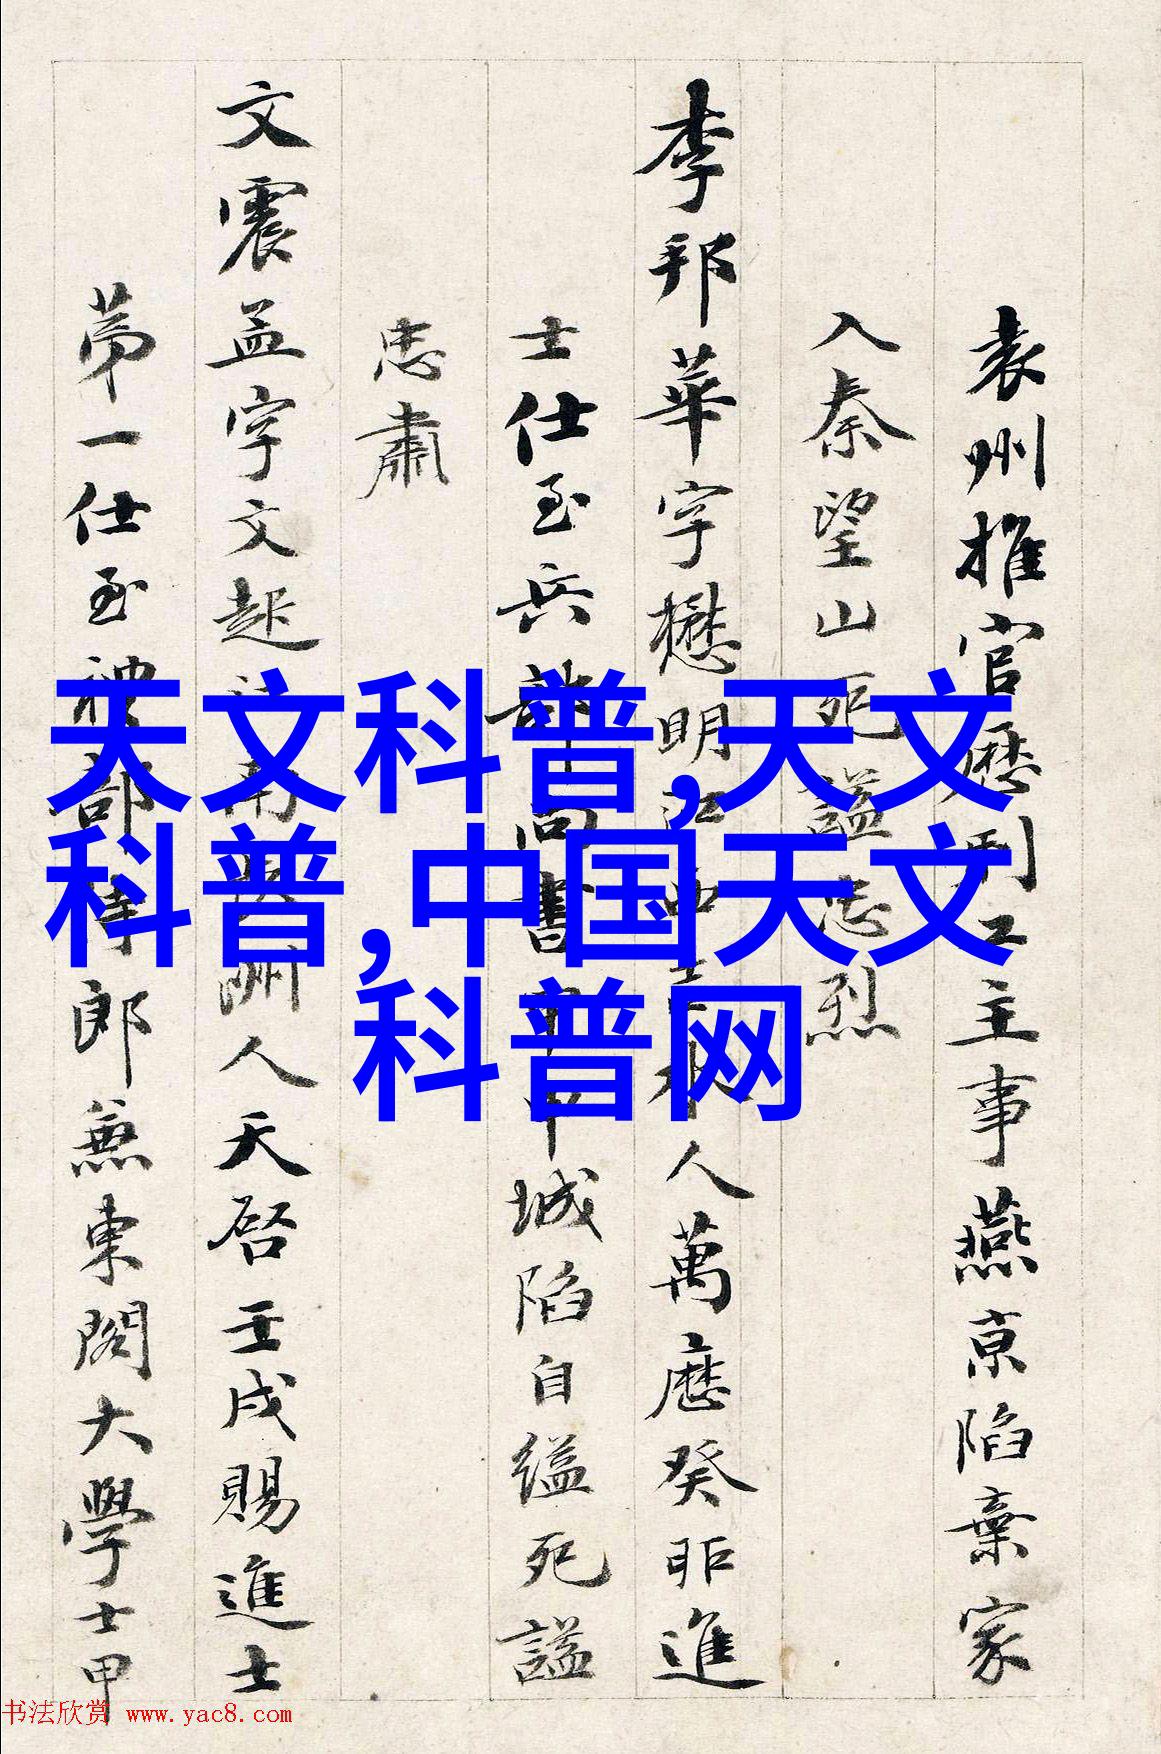 袁州推官歷刑工主事燕京陷棄家
入秦望山死謚忠烈
李邦華字懋明江人萬歷癸卯進
士仕至兵部尚書甲申城陷自縊死謚
忠肅
文震孟字文起洲人天啓壬戌賜進士
第一仕至禮部侍郎兼東閣大學士甲
天文科普,天文
科普,中国天文
科普网
书法欣赏 www.yac8.com